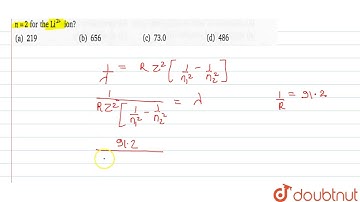 n = 2 for the Li²⁺ ion?
(a) 219 (b) 656 (c) 73.0 (d) 486
1/λ = R Z² [ 1/n₁² − 1/n₂² ]
1 / R Z² [ 1/n₁² − 1/n₂² = λ
1/R = 91.2
91.2
doubtnut